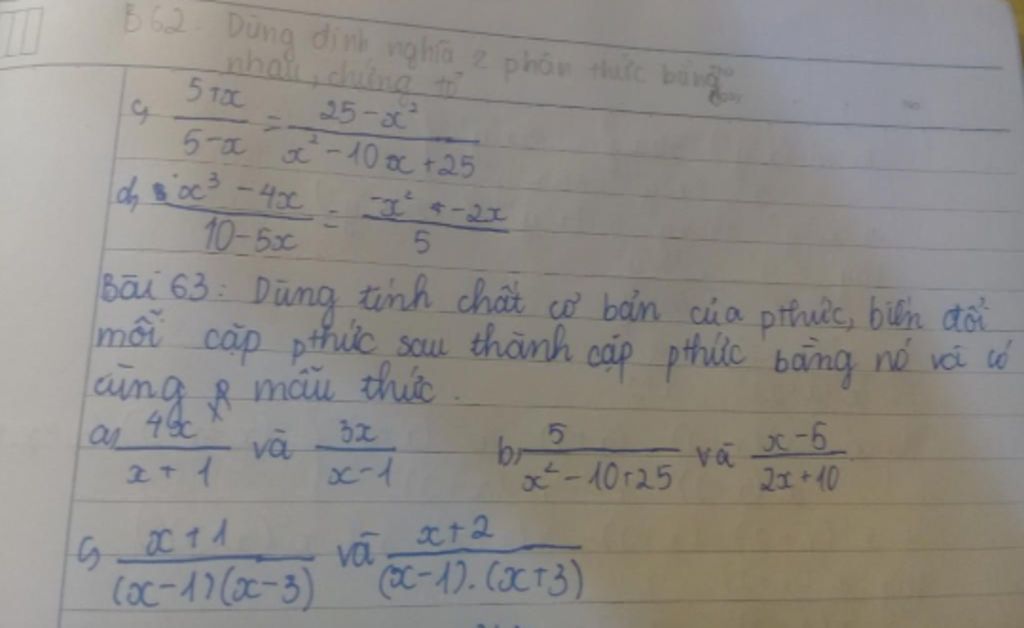 B62. Dùng định nghĩa 2 phân thức bằng
nhau, chứng tỏ
c, (5+x)/(5-x) = (25-x²)/(x²-10x+25)
d, (x³-4x)/(10-5x) = (-x²-2x)/5
Bài 63: Dùng tính chất cơ bản của pthức, biến đổi
mỗi cặp pthức sau thành cặp pthức bằng nó và có
cùng mẫu thức.
a, 4x/(x+1) và 3x/(x-1) b, 5/(x²-10+25) và (x-5)/(2x+10)
c, (x+1)/((x-1)(x-3)) và (x+2)/((x-1).(x+3))